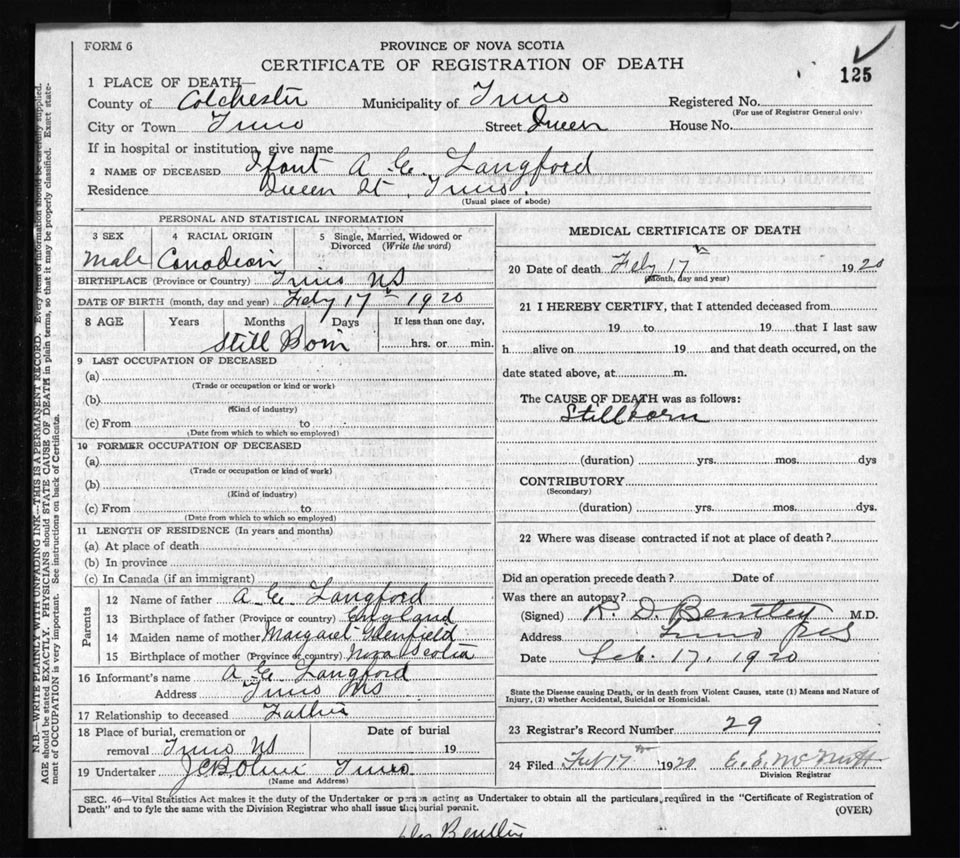 FORM 6
PROVINCE OF NOVA SCOTIA
CERTIFICATE OF REGISTRATION OF DEATH
125
1 PLACE OF DEATH—
County of Colchester Municipality of Truro Registered No.
(For use of Registrar General only)
City or Town Truro Street Queen House No.
If in hospital or institution, give name
2 NAME OF DECEASED Ifant A. E. Langford
Residence Queen St, Truro.
(Usual place of abode)
PERSONAL AND STATISTICAL INFORMATION
3 SEX 4 RACIAL ORIGIN 5 Single, Married, Widowed or Divorced (Write the word)
Male Canadian
BIRTHPLACE (Province or Country) Truro NS
DATE OF BIRTH (month, day and year) Feby 17th 1920
8 AGE Years Months Days If less than one day,
Still Born hrs. or min.
9 LAST OCCUPATION OF DECEASED
(a)
(Trade or occupation or kind or work)
(b)
(Kind of industry)
(c) From to
(Date from which to which so employed)
10 FORMER OCCUPATION OF DECEASED
(a)
(Trade or occupation or kind of work)
(b)
(Kind of industry)
(c) From to
(Date from which to which so employed)
11 LENGTH OF RESIDENCE (In years and months)
(a) At place of death
(b) In province
(c) In Canada (if an immigrant)
Parents
12 Name of father A. E. Langford
13 Birthplace of father (Province or country) England
14 Maiden name of mother Margaret Glenfield
15 Birthplace of mother (Province or country) Nova Scotia
16 Informant's name A E Langford
Address Truro NS
17 Relationship to deceased Father
18 Place of burial, cremation or removal Truro NS Date of burial 19
19 Undertaker Truro
(Name and Address)
MEDICAL CERTIFICATE OF DEATH
20 Date of death Feby 17th 1920
(Month, day and year)
21 I HEREBY CERTIFY, that I attended deceased from
19 to 19 that I last saw
h alive on 19 and that death occurred, on the
date stated above, at m.
The CAUSE OF DEATH was as follows:
Stillborn
(duration) yrs. mos. dys
CONTRIBUTORY
(Secondary)
(duration) yrs. mos. dys.
22 Where was disease contracted if not at place of death?
Did an operation precede death? Date of
Was there an autopsy?
(Signed) R. D. Bentley M.D.
Address Truro NS
Date Feb. 17, 1920
State the Disease causing Death, or in death from Violent Causes, state (1) Means and Nature of
Injury, (2) whether Accidental, Suicidal or Homicidal.
23 Registrar's Record Number 29
24 Filed Feb 17th 1920 E. E. McNutt
Division Registrar
SEC. 46—Vital Statistics Act makes it the duty of the Undertaker or person acting as Undertaker to obtain all the particulars required in the "Certificate of Registration of
Death" and to fyle the same with the Division Registrar who shall issue the burial permit.
(OVER)
N.B.—WRITE PLAINLY WITH UNFADING INK—THIS IS A PERMANENT RECORD. Every item of information should be carefully supplied.
AGE should be stated EXACTLY. PHYSICIANS should STATE CAUSE OF DEATH in plain terms, so that it may be properly classified. Exact state-
ment of OCCUPATION is very important. See instructions on back of Certificate.